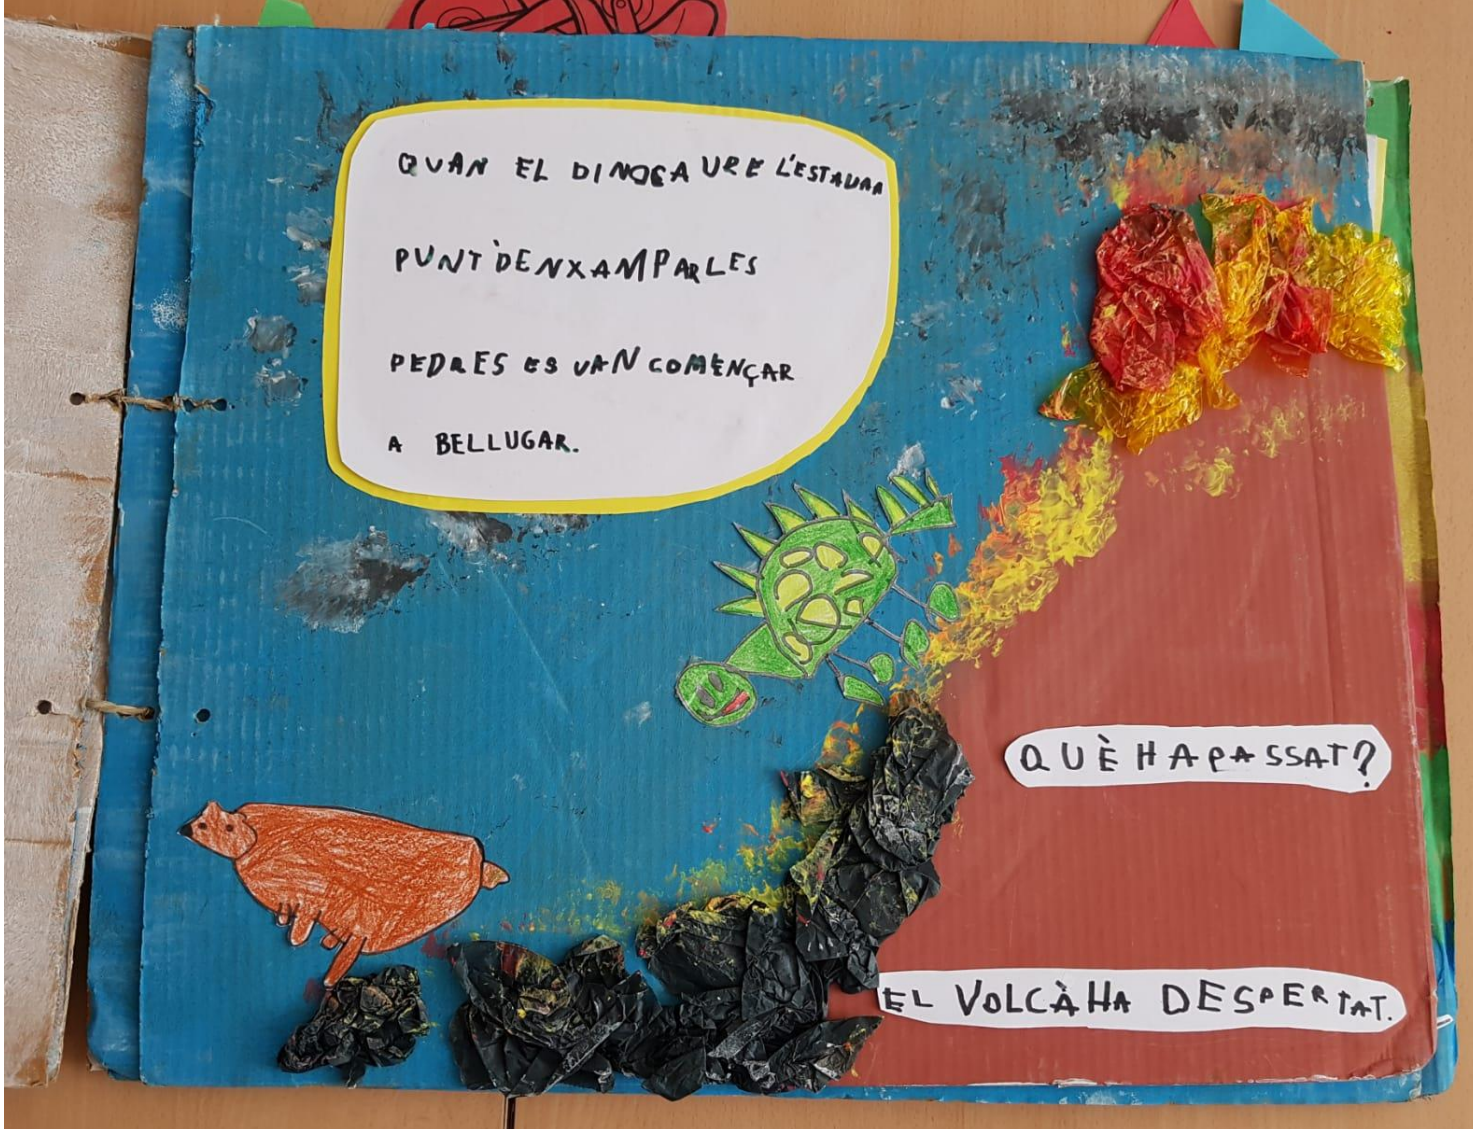 QUAN EL DINOSAURE L'ESTAVA A
PUNT D'ENXAMPAR LES
PEDRES ES VAN COMENÇAR
A BELLUGAR.
QUÈ HA PASSAT?
EL VOLCÀ HA DESPERTAT.